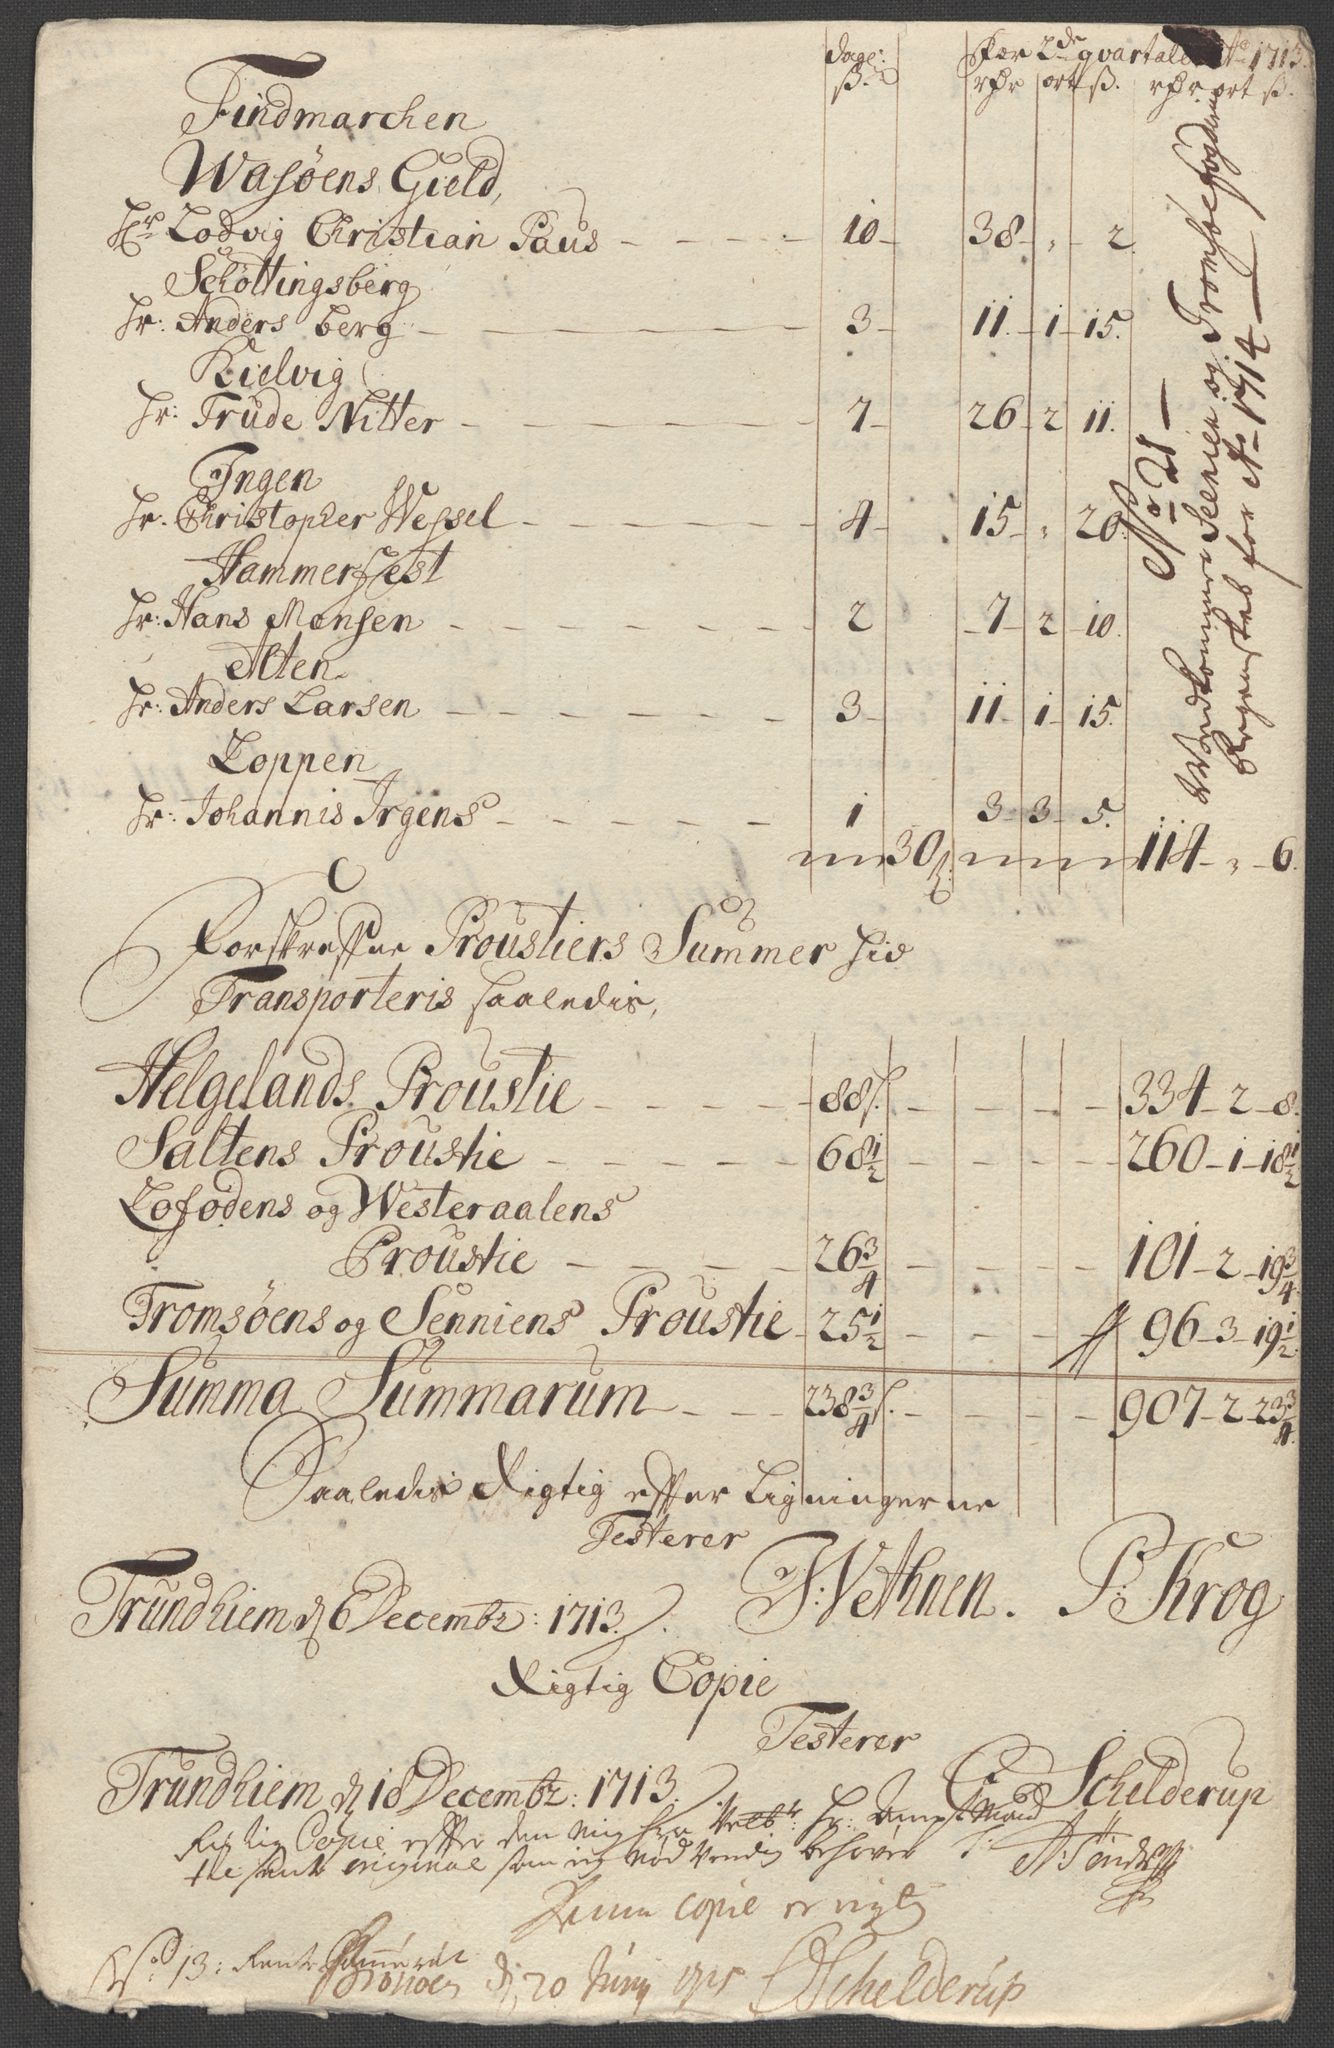 dage: Pær 2de qvartaler Ao 1713.
ß. rdr ort ß. rdr. ort ß.
Findmarchen
Wasøens Gield,
Hr. Lodvig Christian Paus 10 38 - " - 2
Schøttingsberg
Hr: Anders berg 3 11 - 1 - 15.
Kielvig
Hr: Trude Nitter 7 26 - 2 - 11.
Ingen
Hr. Christopher Wessel 4 15 - " - 20.
Hammerfest
Hr: Hans Monsen 2 7 - 2 - 10.
Alten
Hr: Anders Larsen 3 11 - 1 - 15.
Loppen
Hr: Johannis Irgens 1 3 - 3 - 5.
30ß. 114 - " - 6.
Forskrefne Proustiers Summer hid
Transporteris saaledis,
Helgelands Proustie 88ß. 334 - 2 - 8.
Saltens Proustie 68 1/2 260 - 1 - 18 1/2
Lofodens og Westeraalens
Proustie 26 3/4 101 - 2 - 19 3/4
Tromsøens og Senniens Proustie 25 1/2 96 - 3 - 19 1/2
Summa Summarum 238 3/4 ß. 907 - 2 - 23 3/4
Saaledis Rigtig efter Ligningerne
Testerer
Trundhiem d 6 Decembr: 1713. J: Vethnen. P: Krog
Rigtig Copie
Testerer
Trundhiem d 18 Decembr: 1713. C Schelderup
Rigtig Copie efter den mig fra Velbr: Hr: Ampt Mand
original som jeg nød Vendig behøver
Denne copie er rigtig
No 13: Rente Cammeret
d, 20 Juny 1715 Schelderup
No 21
Vedkommer Senien og Tromsøe fogderies
Regenskab for Ao 1714